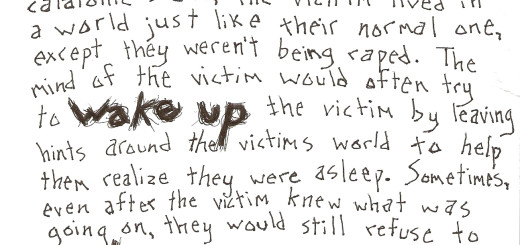 the victim lived in
a world just like their normal one,
except they weren't being raped. The
mind of the victim would often try
to wake up the victim by leaving
hints around the victims world to help
them realize they were asleep. Sometimes,
even after the victim knew what was
going on, they would still refuse to